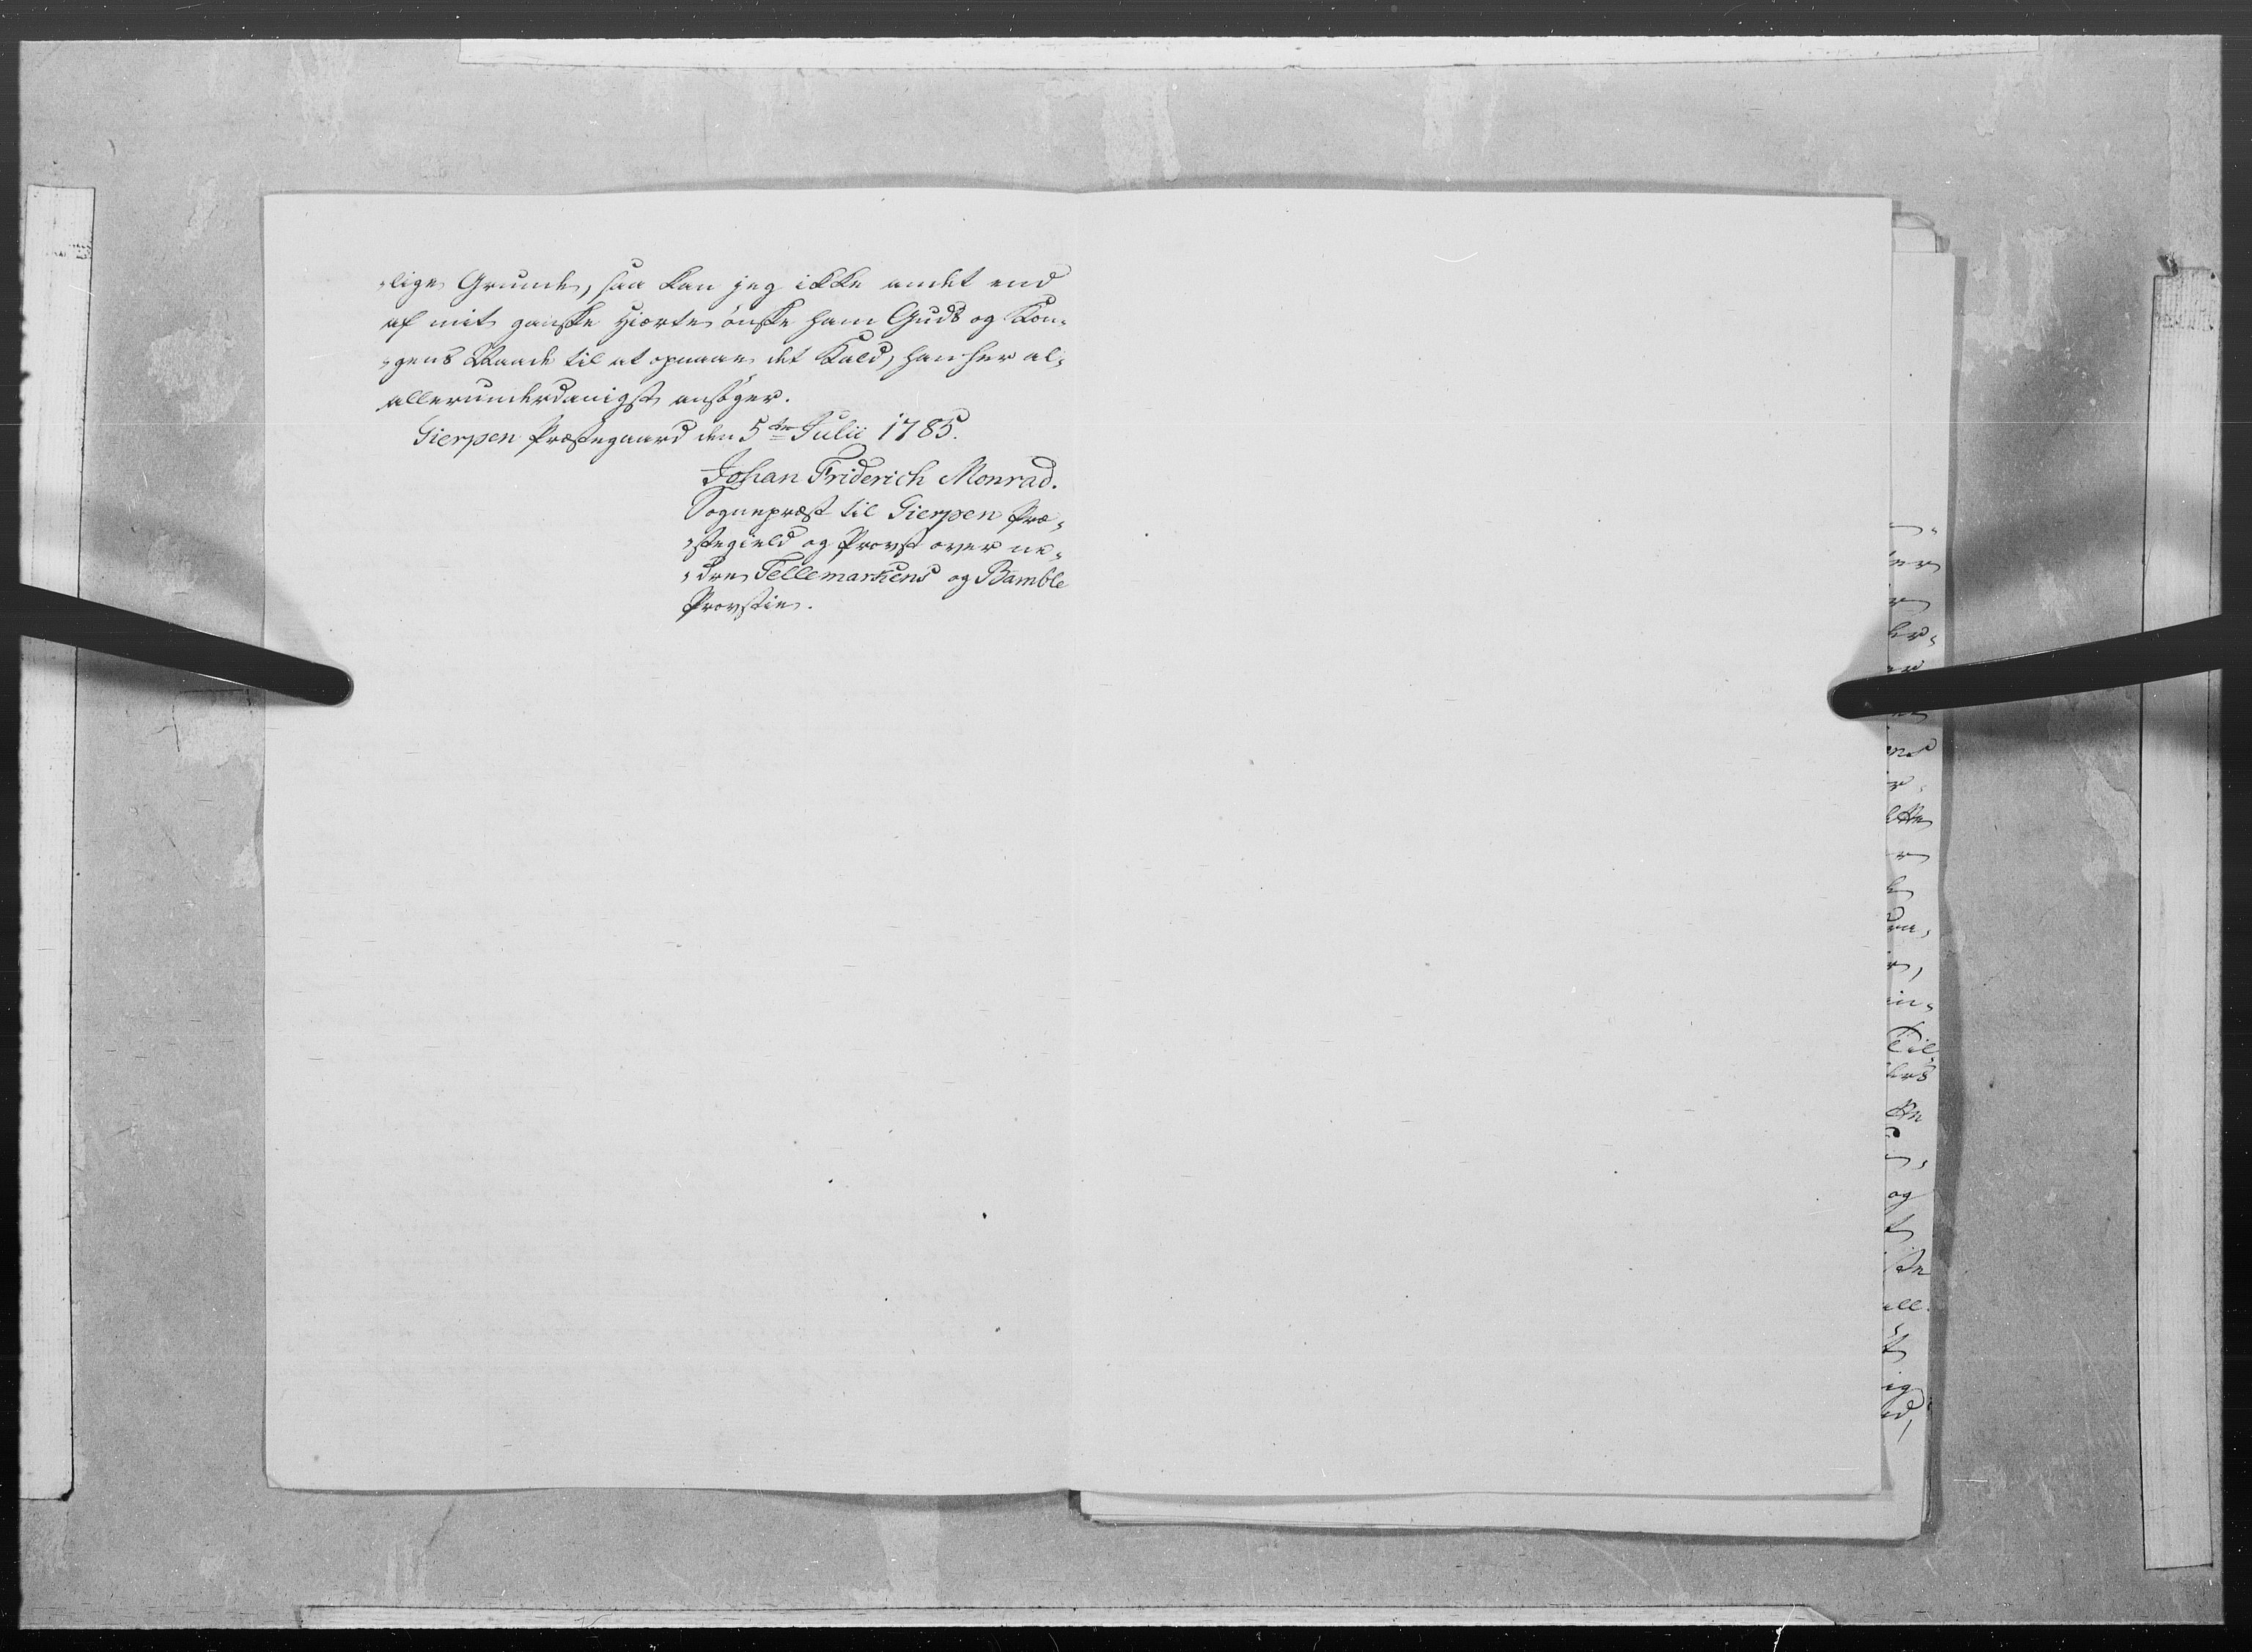 -lige Grunde, saa kan jeg ikke andet end
af mit ganske Hierte ønske ham Guds og Kon-
-gens Naade til at opnaae det Kald, han her al-
allerunderdanigst ansøger.
Gierpen Præstegaard den 5te Julii 1785.
Johan Friderich Monrad.
Sognepræst til Gierpen Præ-
-stegield og Provst over ne-
-dre Tellemarkens og Bamble
Provstie.
og